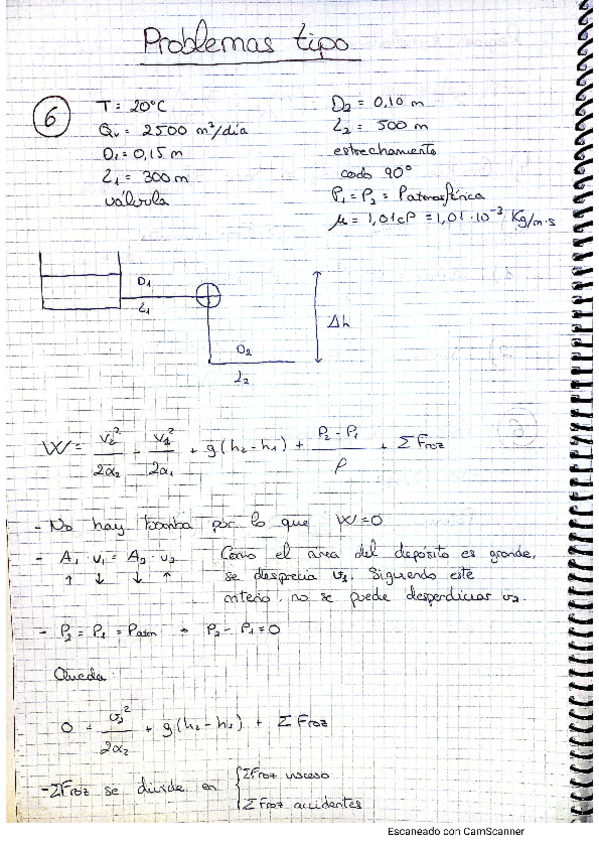 Problemas tipo
6
T = 20°C
Qv = 2500 m³/día
D1 = 0,15 m
L1 = 300 m
válvula
D2 = 0,10 m
L2 = 500 m
estrechamiento
codo 90°
P1 = P2 = Patmosférica
μ = 1,01 cP = 1,01·10⁻³ Kg/m·s
D1
L1
Δh
D2
L2
W = v2²/2α2 - v1²/2α1 + g(h2-h1) + P2-P1/ρ + ΣFroz
- No hay bomba por lo que W=0
- A1 v1 = A2·v2 Como el area del depósito es grande,
↑ ↓ ↓ ↑ se desprecia v1. Siguiendo este
criterio, no se puede desperdiciar v2.
- P2 = P1 = Patm → P2-P1=0
Queda:
0 = v2²/2α2 + g(h2-h1) + ΣFroz
-ΣFroz se divide en { ΣFroz viscoso
ΣFroz accidentes
Escaneado con CamScanner